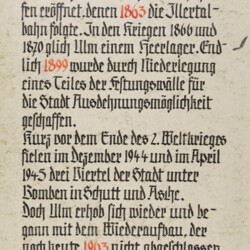 fen eröffnet, denen 1863 die Illertal-
bahn folgte. In den Kriegen 1866 und
1870 glich Ulm einem Heerlager. End-
lich 1899 wurde durch Niederlegung
eines Teiles der Festungswälle für
die Stadt Ausdehnungsmöglichkeit
geschaffen.
Kurz vor dem Ende des 2. Weltkrieges
fielen im Dezember 1944 und im April
1945 drei Viertel der Stadt unter
Bomben in Schutt und Asche.
Doch Ulm erhob sich wieder und be-
gann mit dem Wiederaufbau, der
noch heute 1963 nicht abgeschlossen